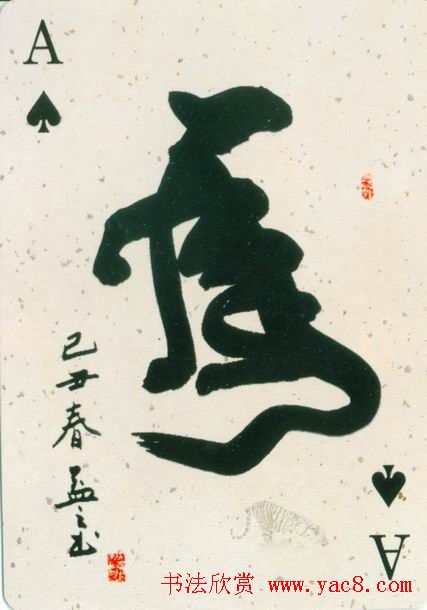 A
虎
己丑春
A
书法欣赏 www.yac8.com